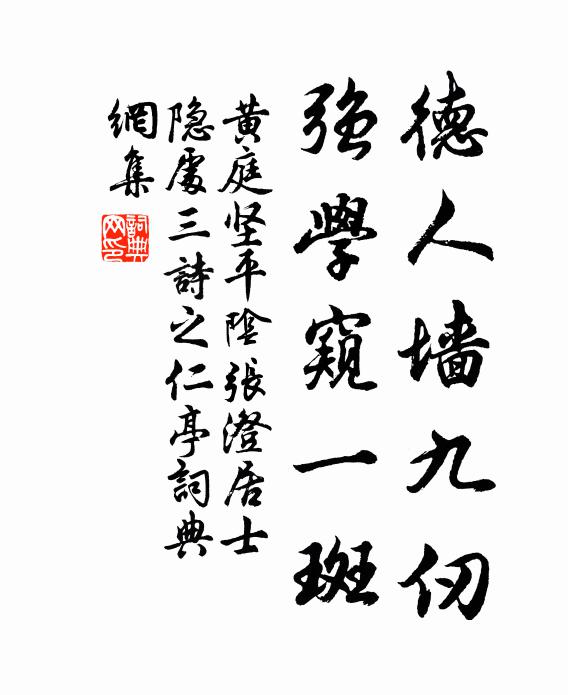 德人墙九仞
强學窺一斑
黄庭坚平陰張澄居士
隐處三詩之仁亭詞典
網集
詞典
网印